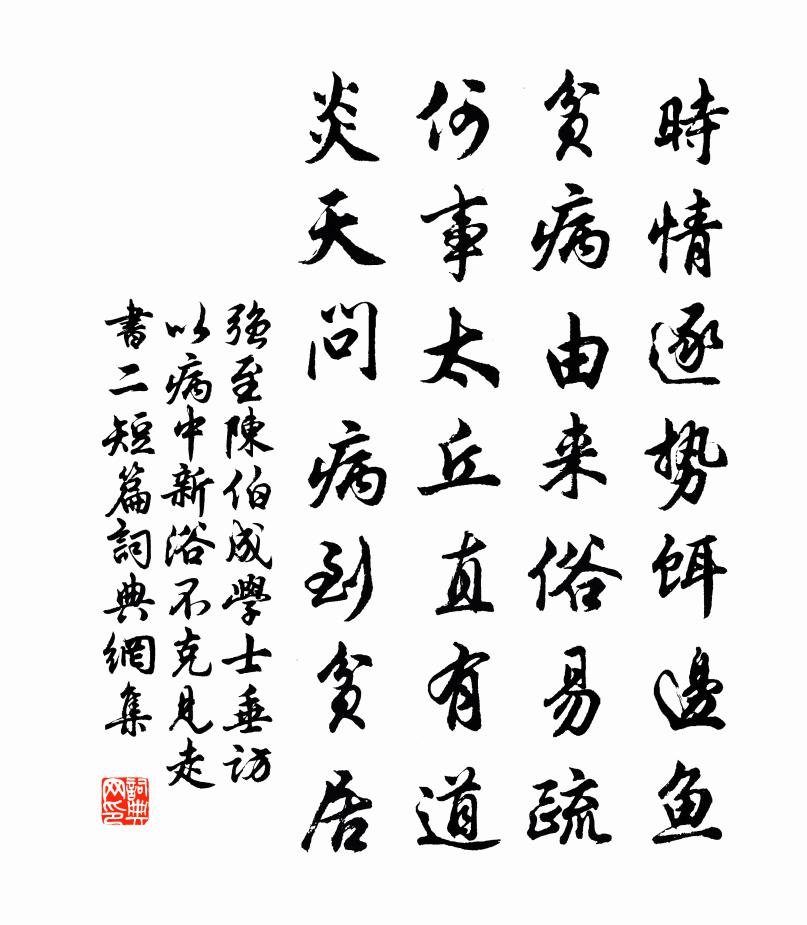 時情逐勢餌邊魚
貧病由来俗易疏
何事太丘直有道
炎天問病到貧居
強至陳伯成學士垂訪
以病中新浴不克見走
書二短篇詞典網集
詞典
网印